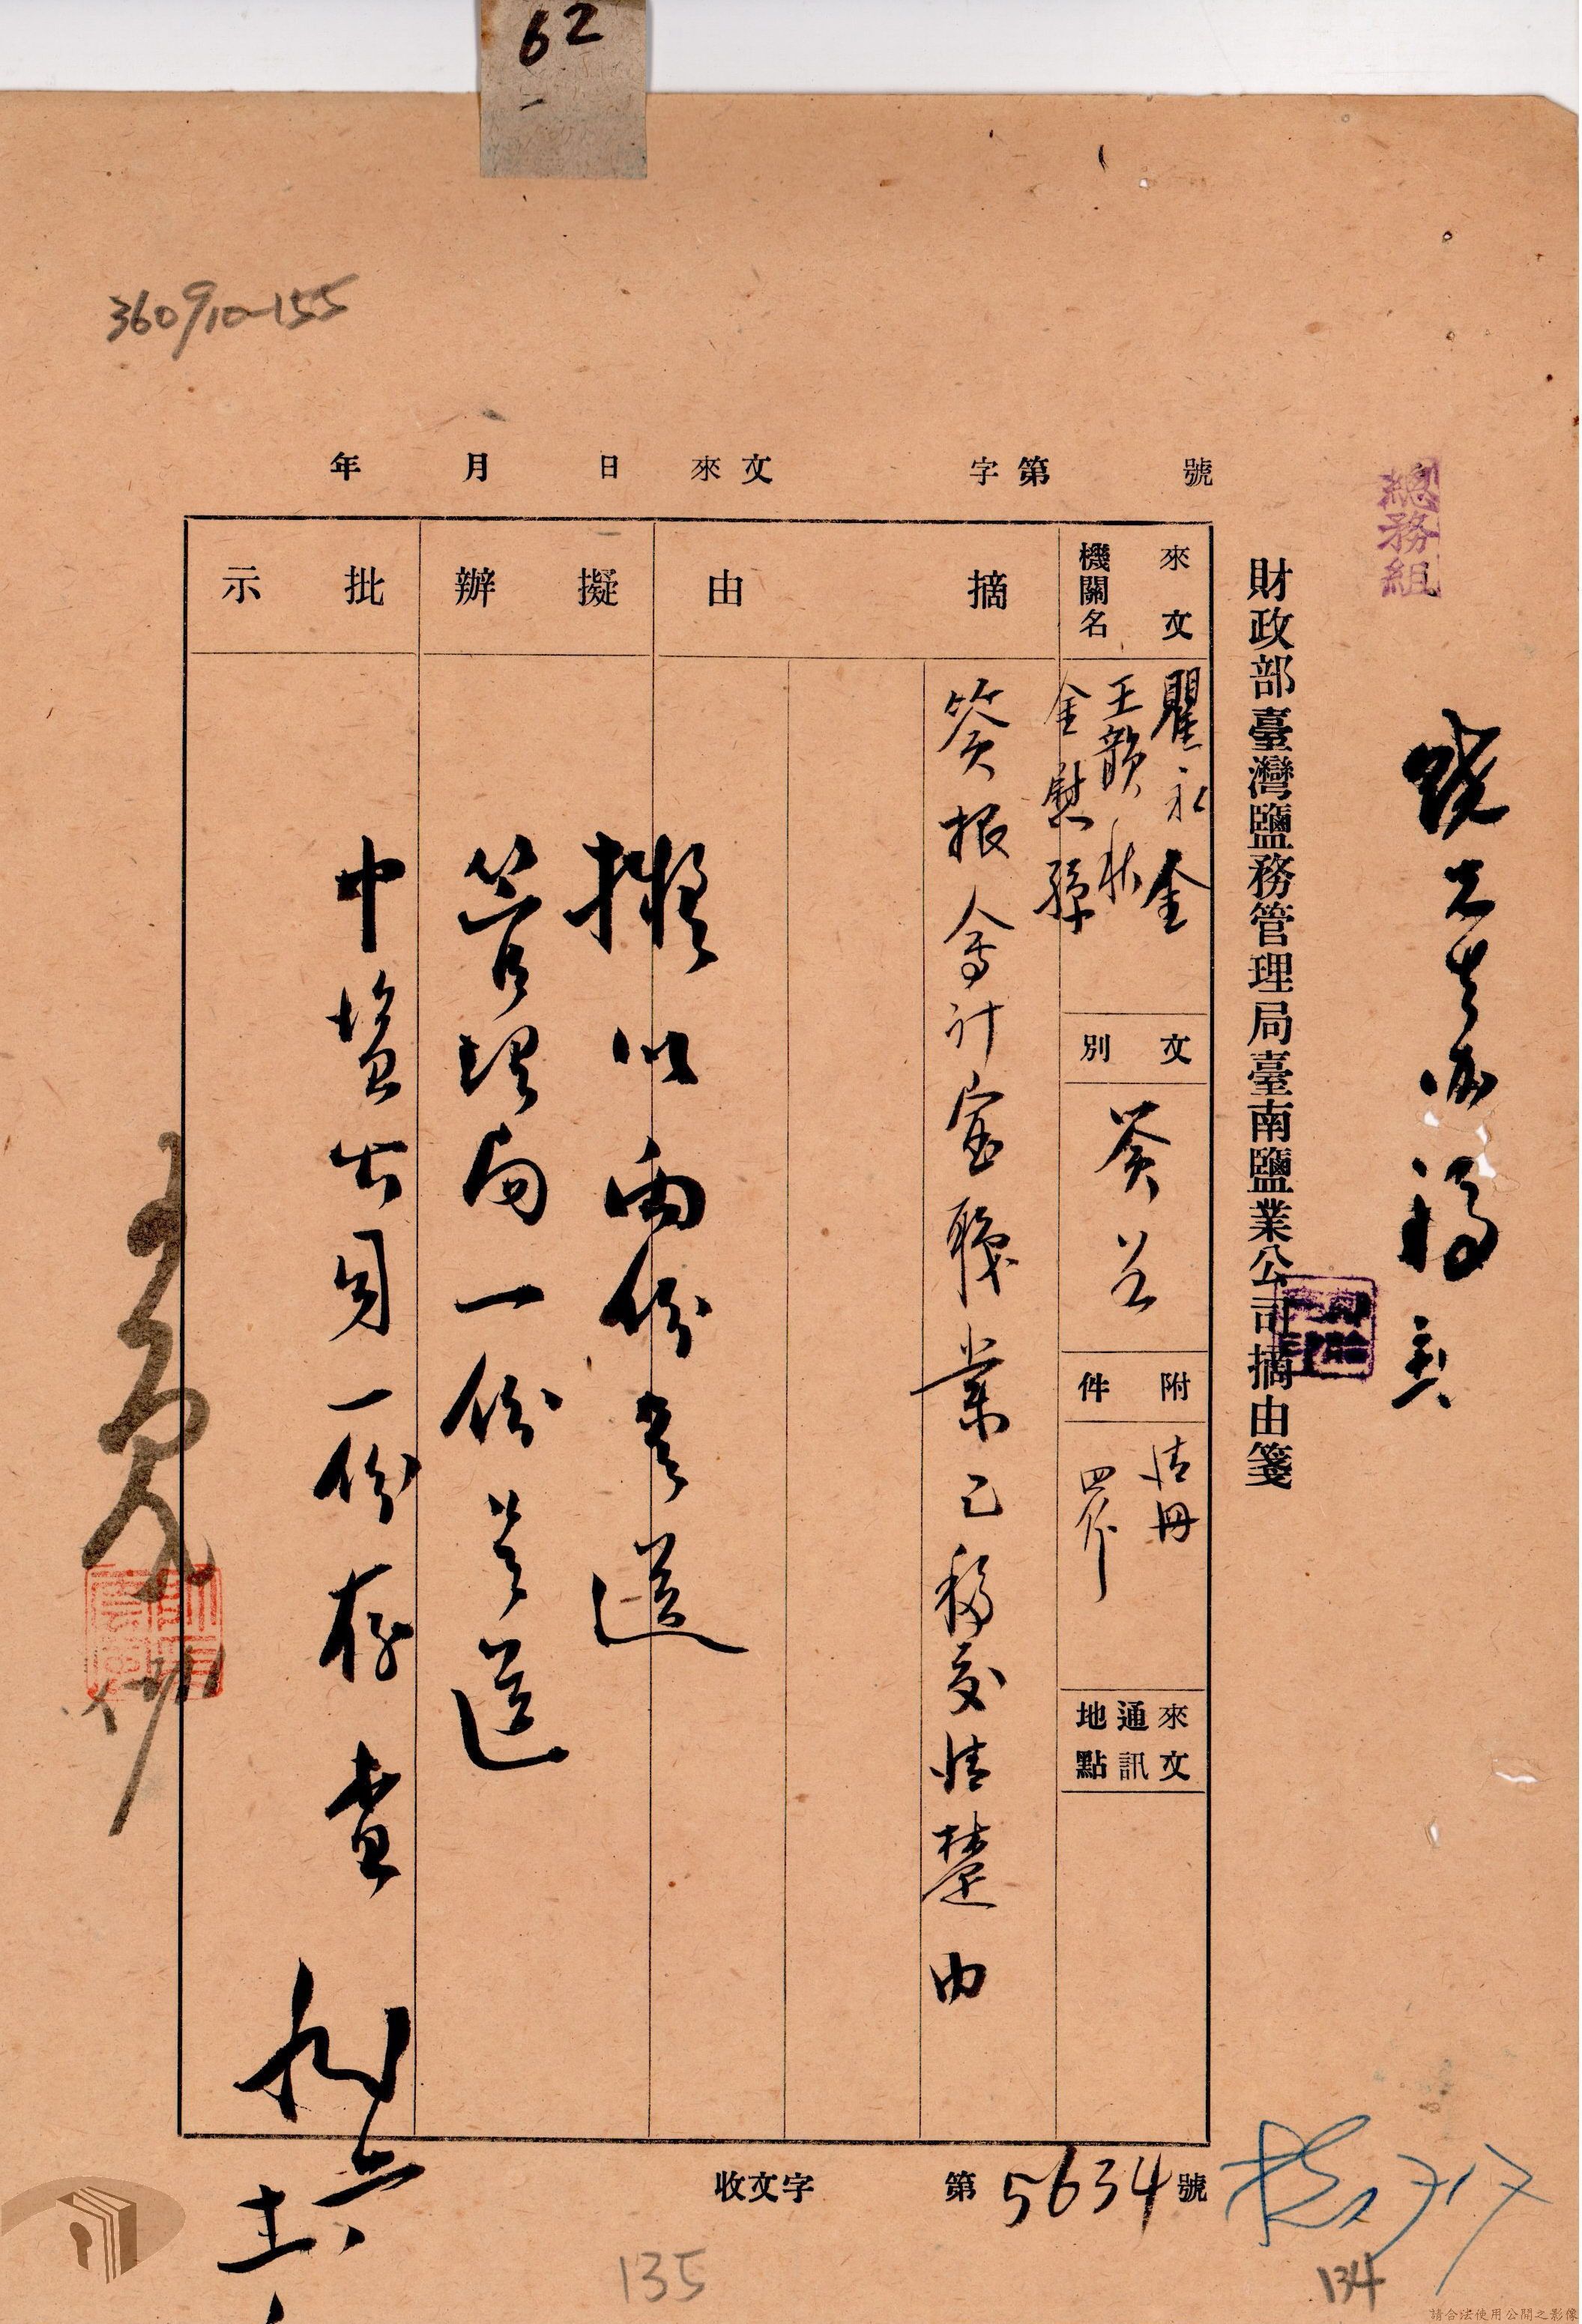 62
360910-155
總務組
財政部臺灣鹽務管理局臺南鹽業公司摘由箋
年 月 日 來文 字第 號
來文機關名
瞿永金
王韻秋
金慰孫
文別
簽呈
附件
清冊
四份
來文通訊地點
摘由
簽報會計室職業已移交清楚由
擬辦
擬以兩份呈送
管理局一份呈送
中鹽公司一份存查
批示
收文字 第5634號
135
134
請合法使用公開之影像